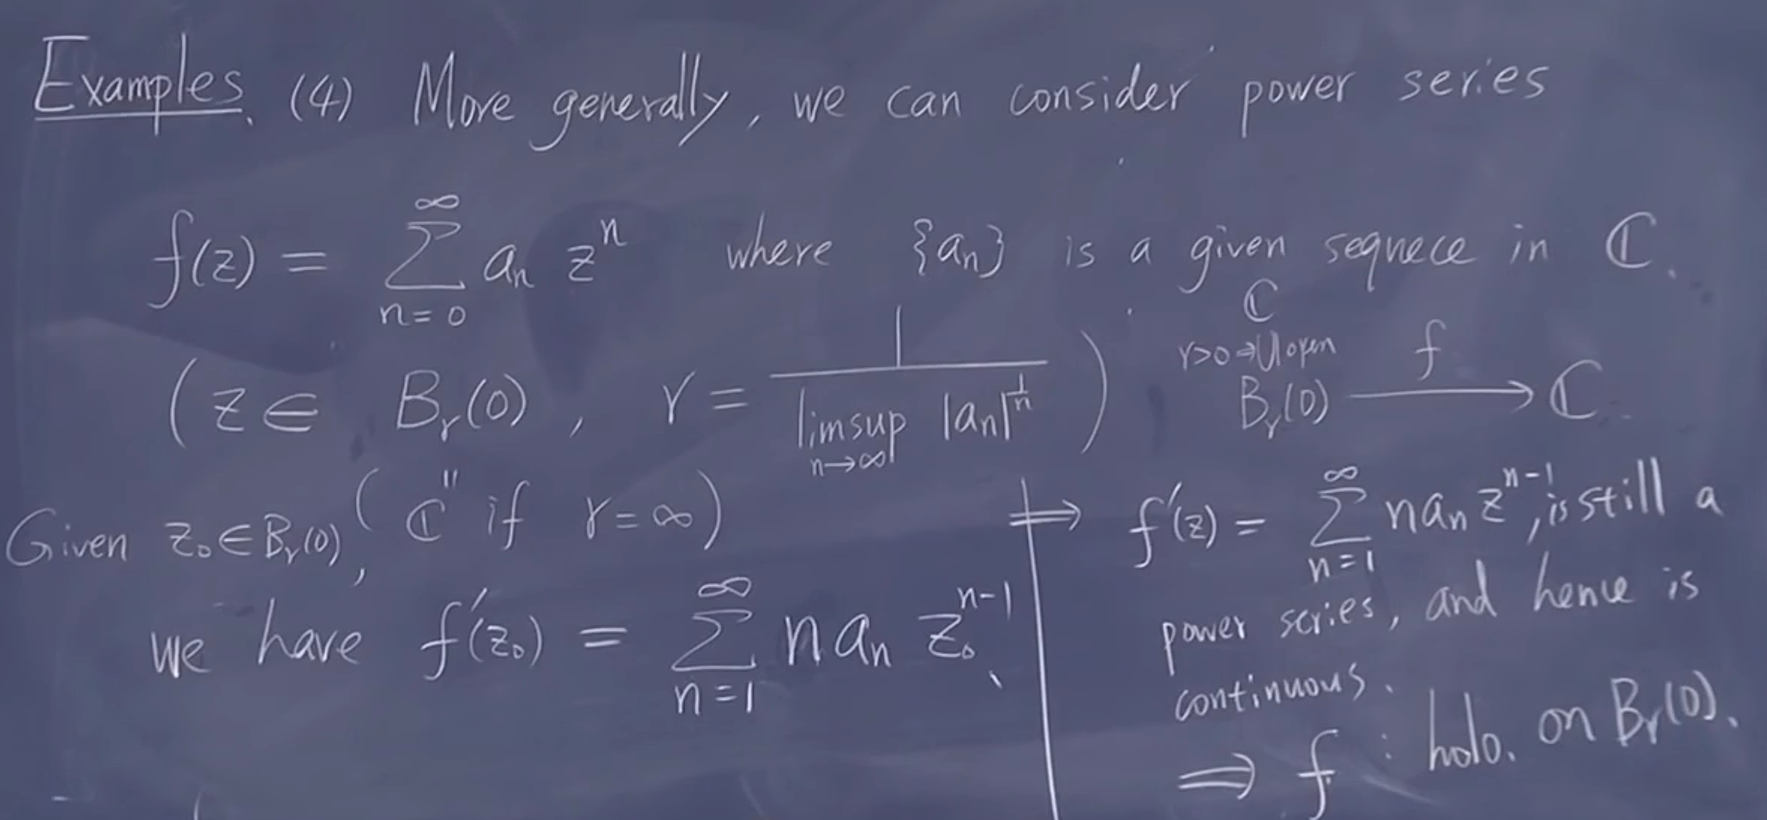 Examples. (4) More generally, we can consider power series
f(z) = ∑_{n=0}^{∞} aₙ zⁿ where {aₙ} is a given sequece in ℂ.
(z ∈ Bᵣ(0), r = 1 / limsup_{n→∞} |aₙ|^{1/n})
(ℂ if r=∞)
ℂ
r>0 ⇒ ∪ open
Bᵣ(0) —f→ ℂ
Given z₀∈Bᵣ(0),
we have f′(z₀) = ∑_{n=1}^{∞} n aₙ z₀^{n-1}.
⇒ f′(z) = ∑_{n=1}^{∞} n aₙ z^{n-1}, is still a
power series, and hence is
continuous.
⇒ f : holo. on Bᵣ(0).